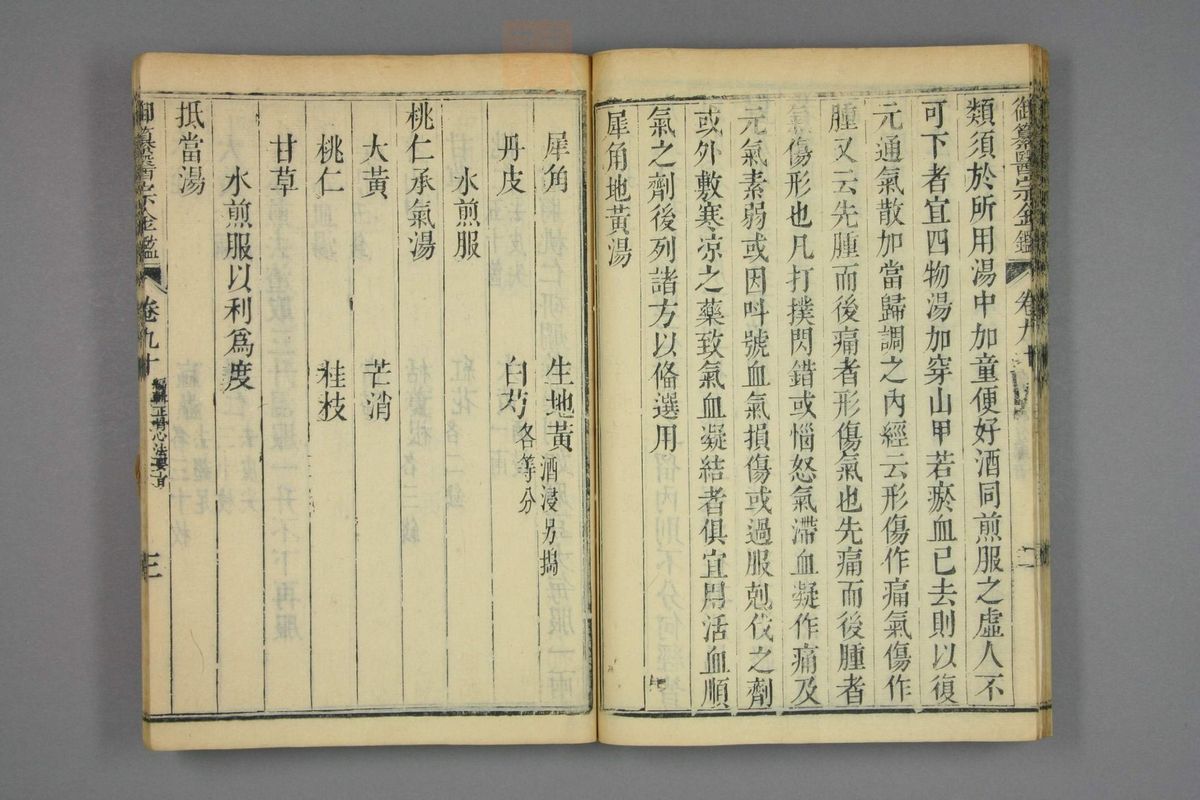 御纂醫宗金鑑 卷九十 二
類須於所用湯中加童便好酒同煎服之虛人不
可下者宜四物湯加穿山甲若瘀血已去則以復
元通氣散加當歸調之內經云形傷作痛氣傷作
腫又云先腫而後痛者形傷氣也先痛而後腫者
氣傷形也凡打撲閃錯或惱怒氣滯血凝作痛及
元氣素弱或因叫號血氣損傷或過服剋伐之劑
或外敷寒凉之藥致氣血凝結者俱宜用活血順
氣之劑後列諸方以俻選用
犀角地黃湯
犀角 生地黃酒浸另搗
丹皮 白芍各等分
水煎服
桃仁承氣湯
大黃 芒消
桃仁 桂枝
甘草
水煎服以利爲度
抵當湯
御纂醫宗金鑑 卷九十 編輯正骨心法要旨 三